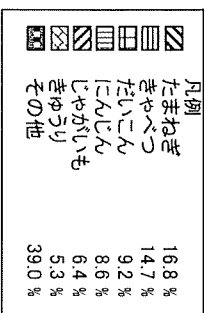 凡例
たまねぎ 16.8 %
きゃべつ 14.7 %
だいこん 9.2 %
にんじん 8.6 %
じゃがいも 6.4 %
きゅうり 5.3 %
その他 39.0 %